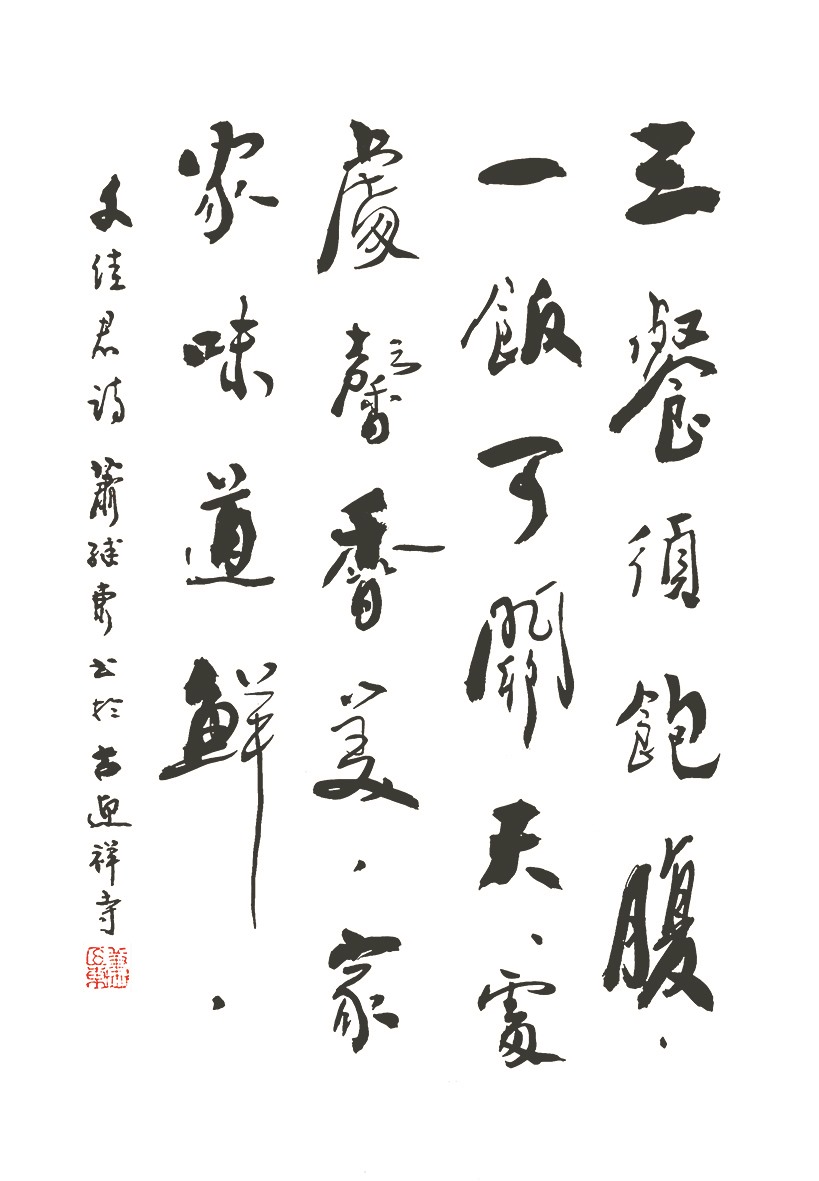 三餐須飽腹．
一飯可開天、處
處馨香美．家
家味道鮮．
文佳君詩蕭繼東书於古迎祥寺